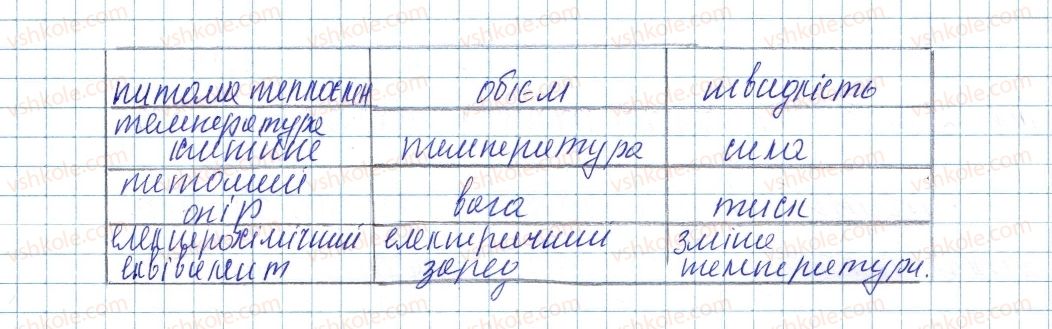 питома теплоємн обієм швидкість
температура
кипіння температура сила
питомий
опір вага тиск
електрохімічний електричний зміна
еквівалент заряд температури.
vshkole.com